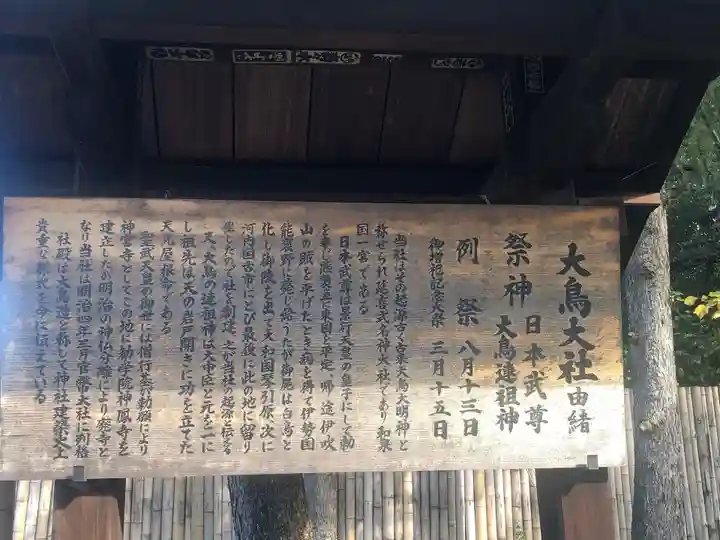 大鳥大社由緒
祭神 日本武尊
大鳥連祖神
例祭 八月十三日
御増祀記念大祭 三月十五日
当社は其の起源古く古来大鳥大明神と
称せられ延喜式名神大社であり和泉
国一宮である
日本武尊は景行天皇の皇子にして勅
を奉じ熊襲並に東国を平定し啣
山の賊を平げたもとき病を得て伊勢国
能褒野に薨じ給うたが御屍は白鳥と
化し御陵を出で大和国琴引原 次に
河内国古市にとび最後に此の地に留り
給したので社を創建 之が当社の起源と伝える
又、大鳥の連祖神は大中臣と元を一に
し祖先は天の岩戸開きに功を立てた
天児屋根命である
聖武天皇の御世には僧行基勅願により
神宮寺としてこの地に勧学院神鳳寺を
建立したが明治の神仏分離により廃寺と
なり当社は明治四年三月官幣大社に列格
社殿は大鳥造と称して神社建築史上
貴重な形式を今に伝えている